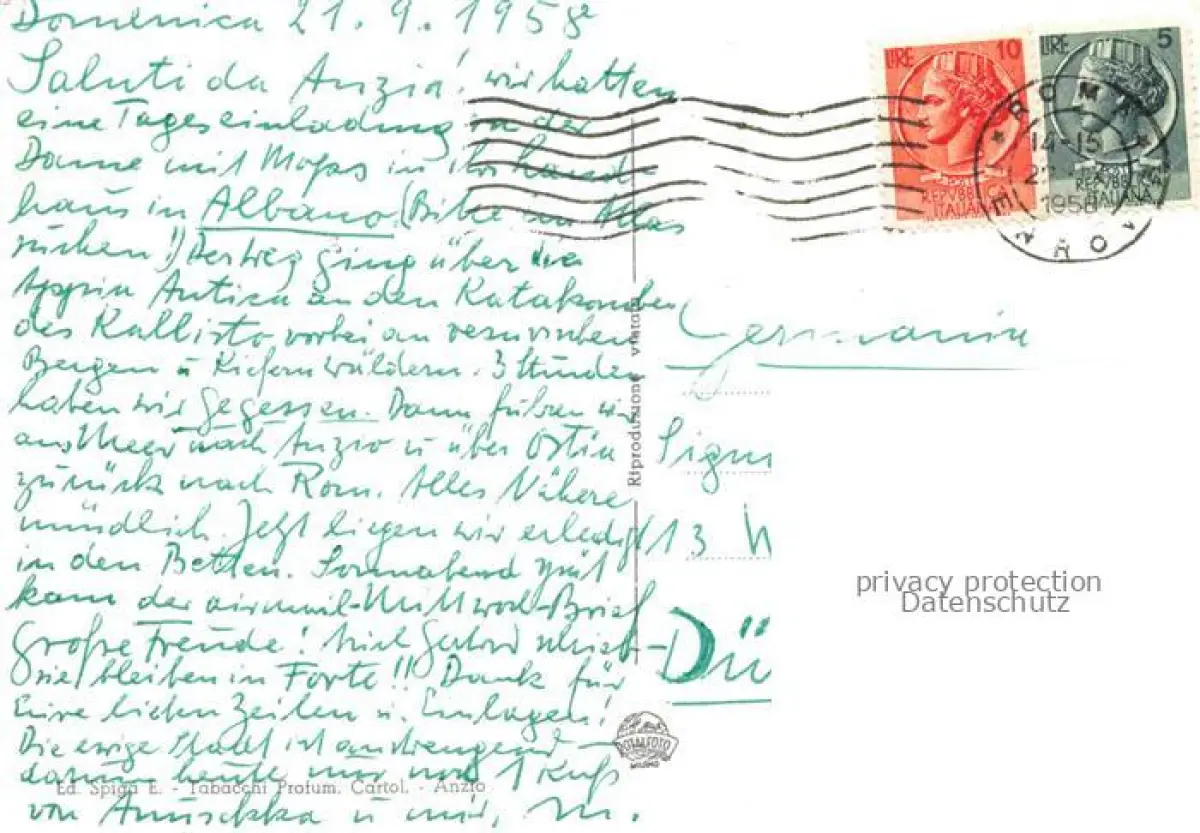 Domenica 21.9.1958
Saluti da Anzio! wir hatten
eine Tageseinladung in der
Dame mit Mops in ihr Land-
haus in Albano (Bitte im Atlas
suchen!) Der Weg ging über die
Appia Antica an den Katakomben
des Kallisto vorbei an
Bergen u Kiefernwäldern. 3 Stunden
haben wir gegessen. Dann fuhren wir
ans Meer nach Anzio u über Ostia
zurück nach Rom. Alles Nähere
mündlich. Jetzt liegen wir erledigt
in den Betten. Sonnabend spät
kam der airmail-Mittwoch-Brief
Große Freude!
Sie bleiben in Forte!! Dank für
Eure lieben Zeilen u. Einlagen!
Die ewige Stadt ist anstrengend -
darum heute nur noch 1 Kuß
von Anuschka u mir, M.
Ed. Spiga E. - Tabacchi Profum. Cartol. - Anzio
Riproduzione vietata
LIRE 10
REPVBBLICA
ITALIANA
LIRE 5
REPVBBLICA
ITALIANA
ROMA
14-15
1958
Germania
Sign
13
Dü
ROTALFOTO
MILANO
privacy protection
Datenschutz